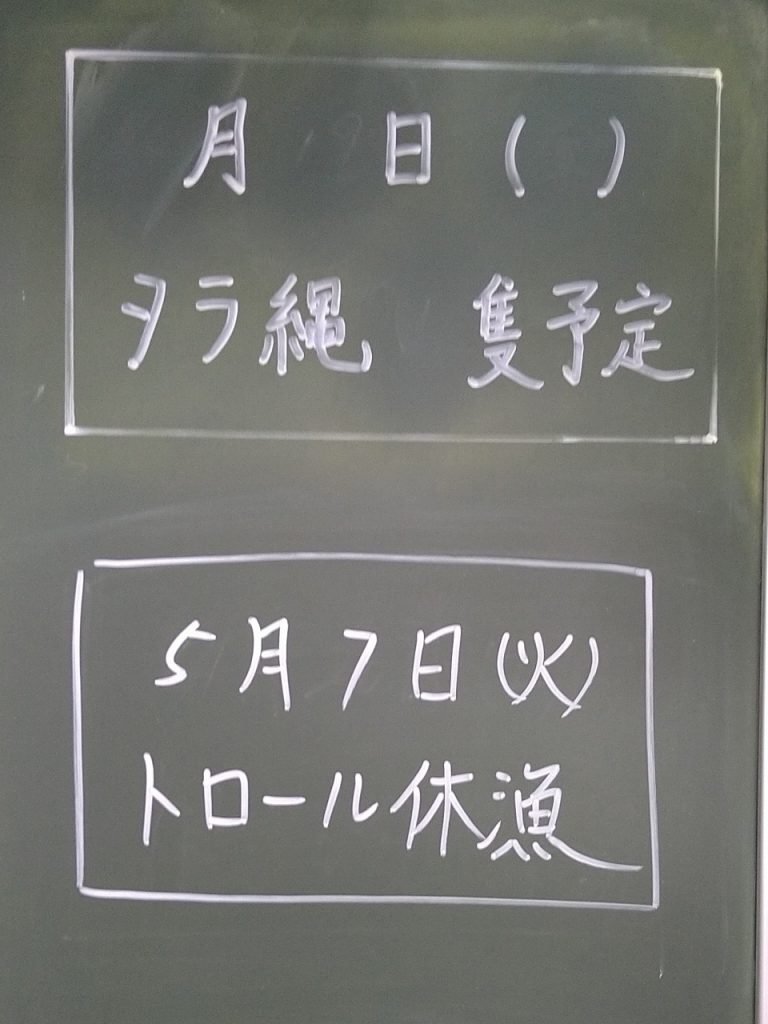 月 日( )
タラ縄 隻予定
5月7日(火)
トロール休漁